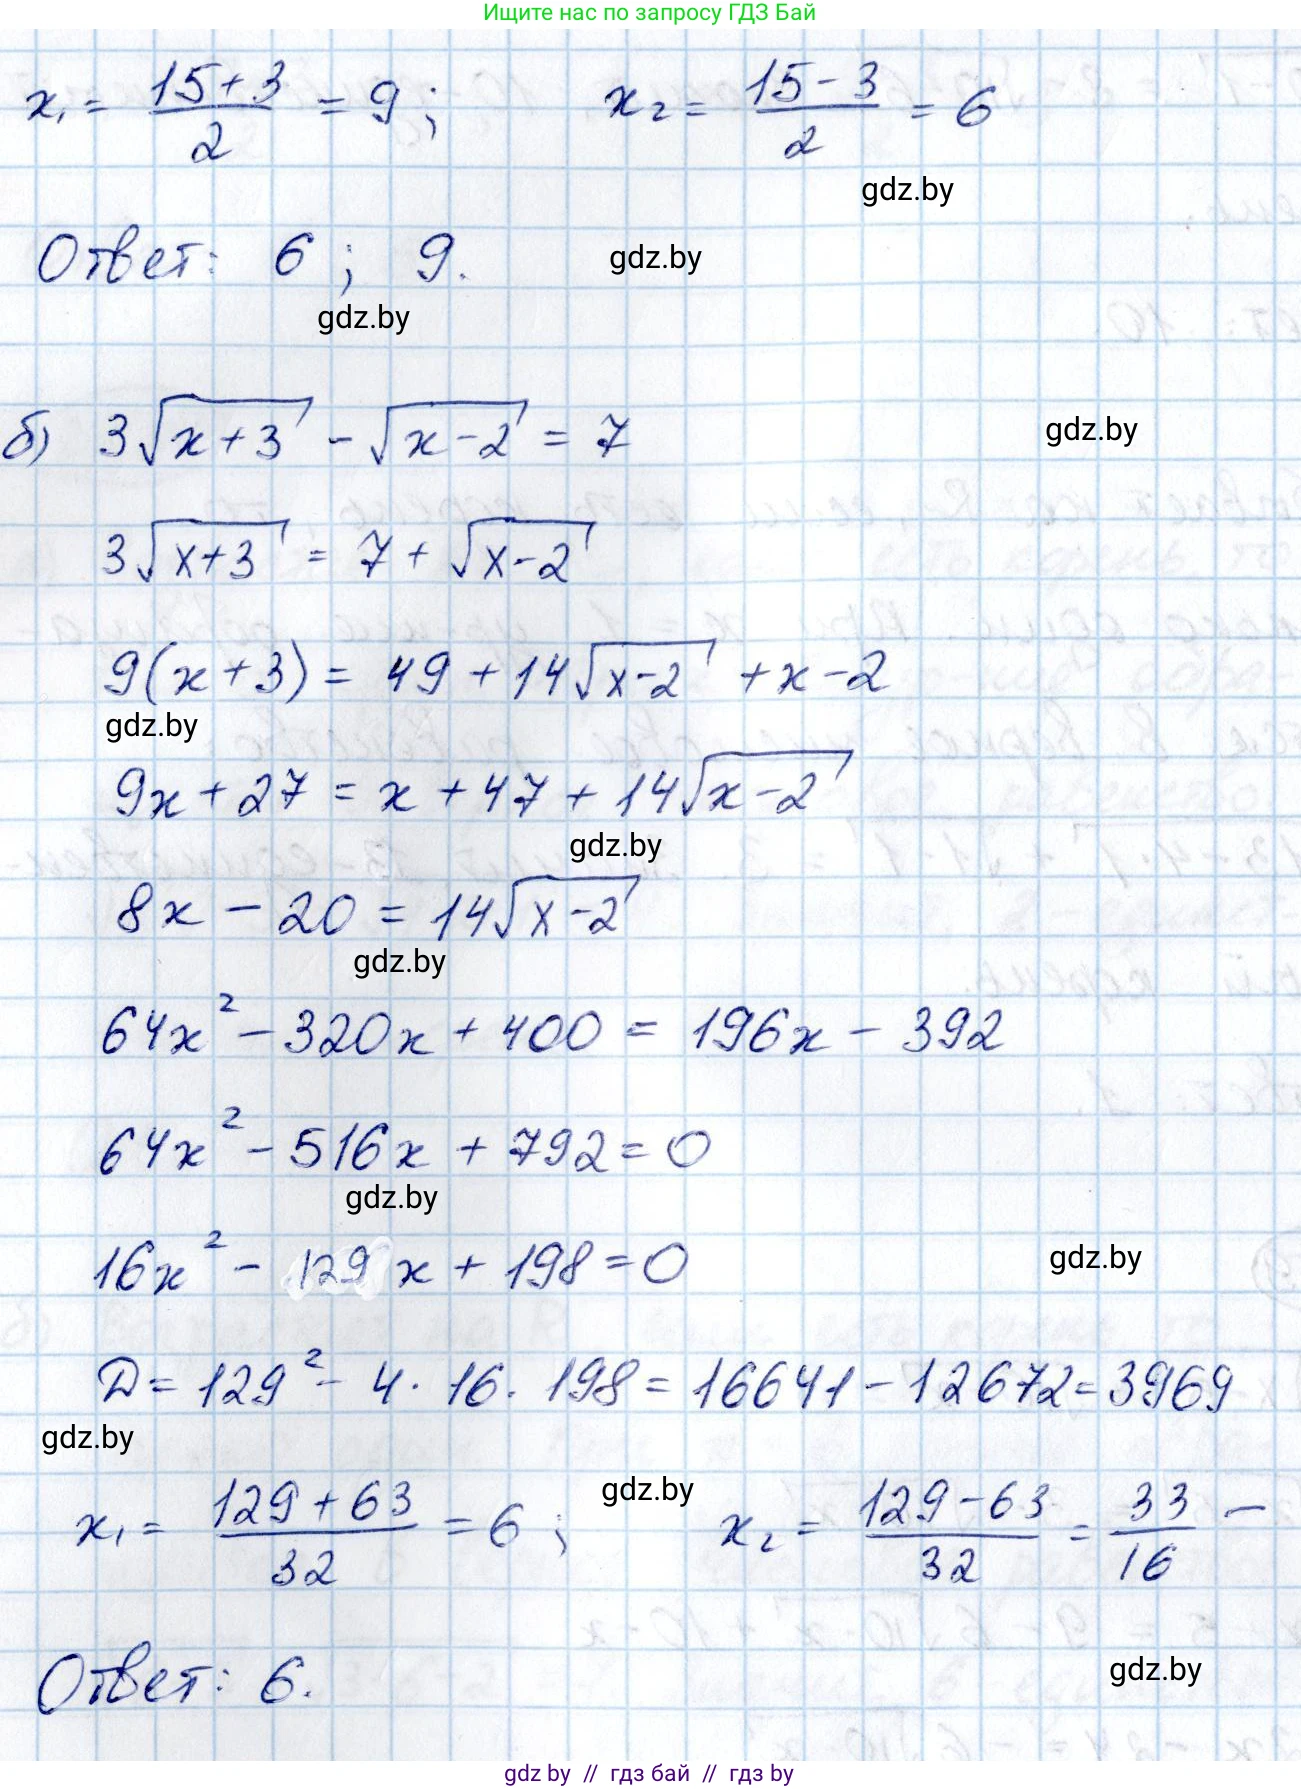 Ищите нас по запросу ГДЗ Бай
x₁ = (15+3)/2 = 9; x₂ = (15-3)/2 = 6
gdz.by
Ответ: 6; 9.
gdz.by
gdz.by
б) 3√(x+3) - √(x-2) = 7
gdz.by
3√(x+3) = 7 + √(x-2)
9(x+3) = 49 + 14√(x-2) + x - 2
gdz.by
9x + 27 = x + 47 + 14√(x-2)
gdz.by
8x - 20 = 14√(x-2)
gdz.by
64x² - 320x + 400 = 196x - 392
64x² - 516x + 792 = 0
gdz.by
16x² - 129x + 198 = 0
gdz.by
D = 129² - 4 · 16 · 198 = 16641 - 12672 = 3969
gdz.by
gdz.by
x₁ = (129+63)/32 = 6; x₂ = (129-63)/32 = 33/16 -
Ответ: 6.
gdz.by
gdz by // гдз бай // гдз by